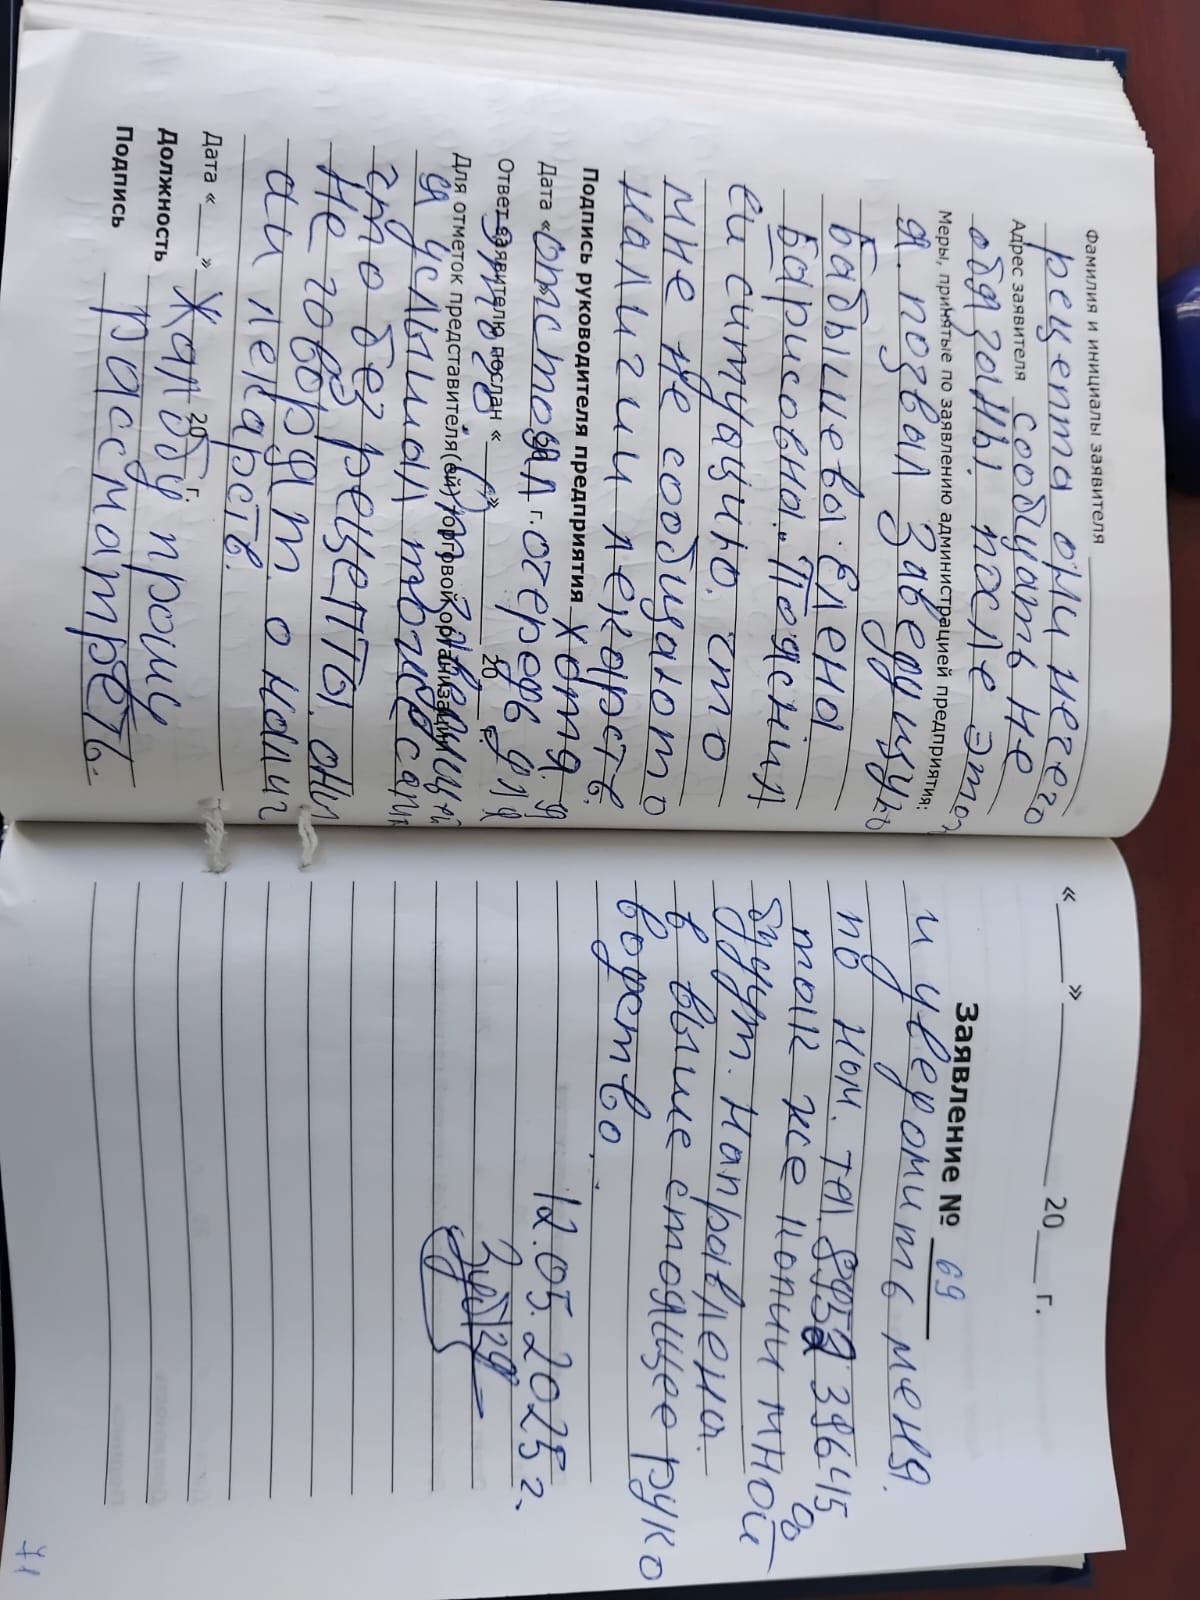 Фамилия и инициалы заявителя
рецепта они нечего
Адрес заявителя сообщать не
обязаны. после этого
Меры, принятые по заявлению администрацией предприятия:
я. позвал Заведущую
Бабышевы. Елена
Барисовна. Пояснил
ей ситуацию. что
мне не сообщают о
наличии лекарств.
Подпись руководителя предприятия Хотя я
Дата « отстоял г. очередь для
Ответ заявителю послан « » 20 г.
этого.
Для отметок представителя(ей) торговой организации
я услышал тоже сам
что без рецепты. они
не говорят. о налич
аи лекарств.
Дата « » 20 г.
Жалобу прошу
Должность
Подпись рассматреть.
« » 20 г.
Заявление № 69
и уведомить меня.
по ном. тел.
так же копии мной
будут. направлена.
в выше стоящее руко
водство.
12.05.2025 г.
71